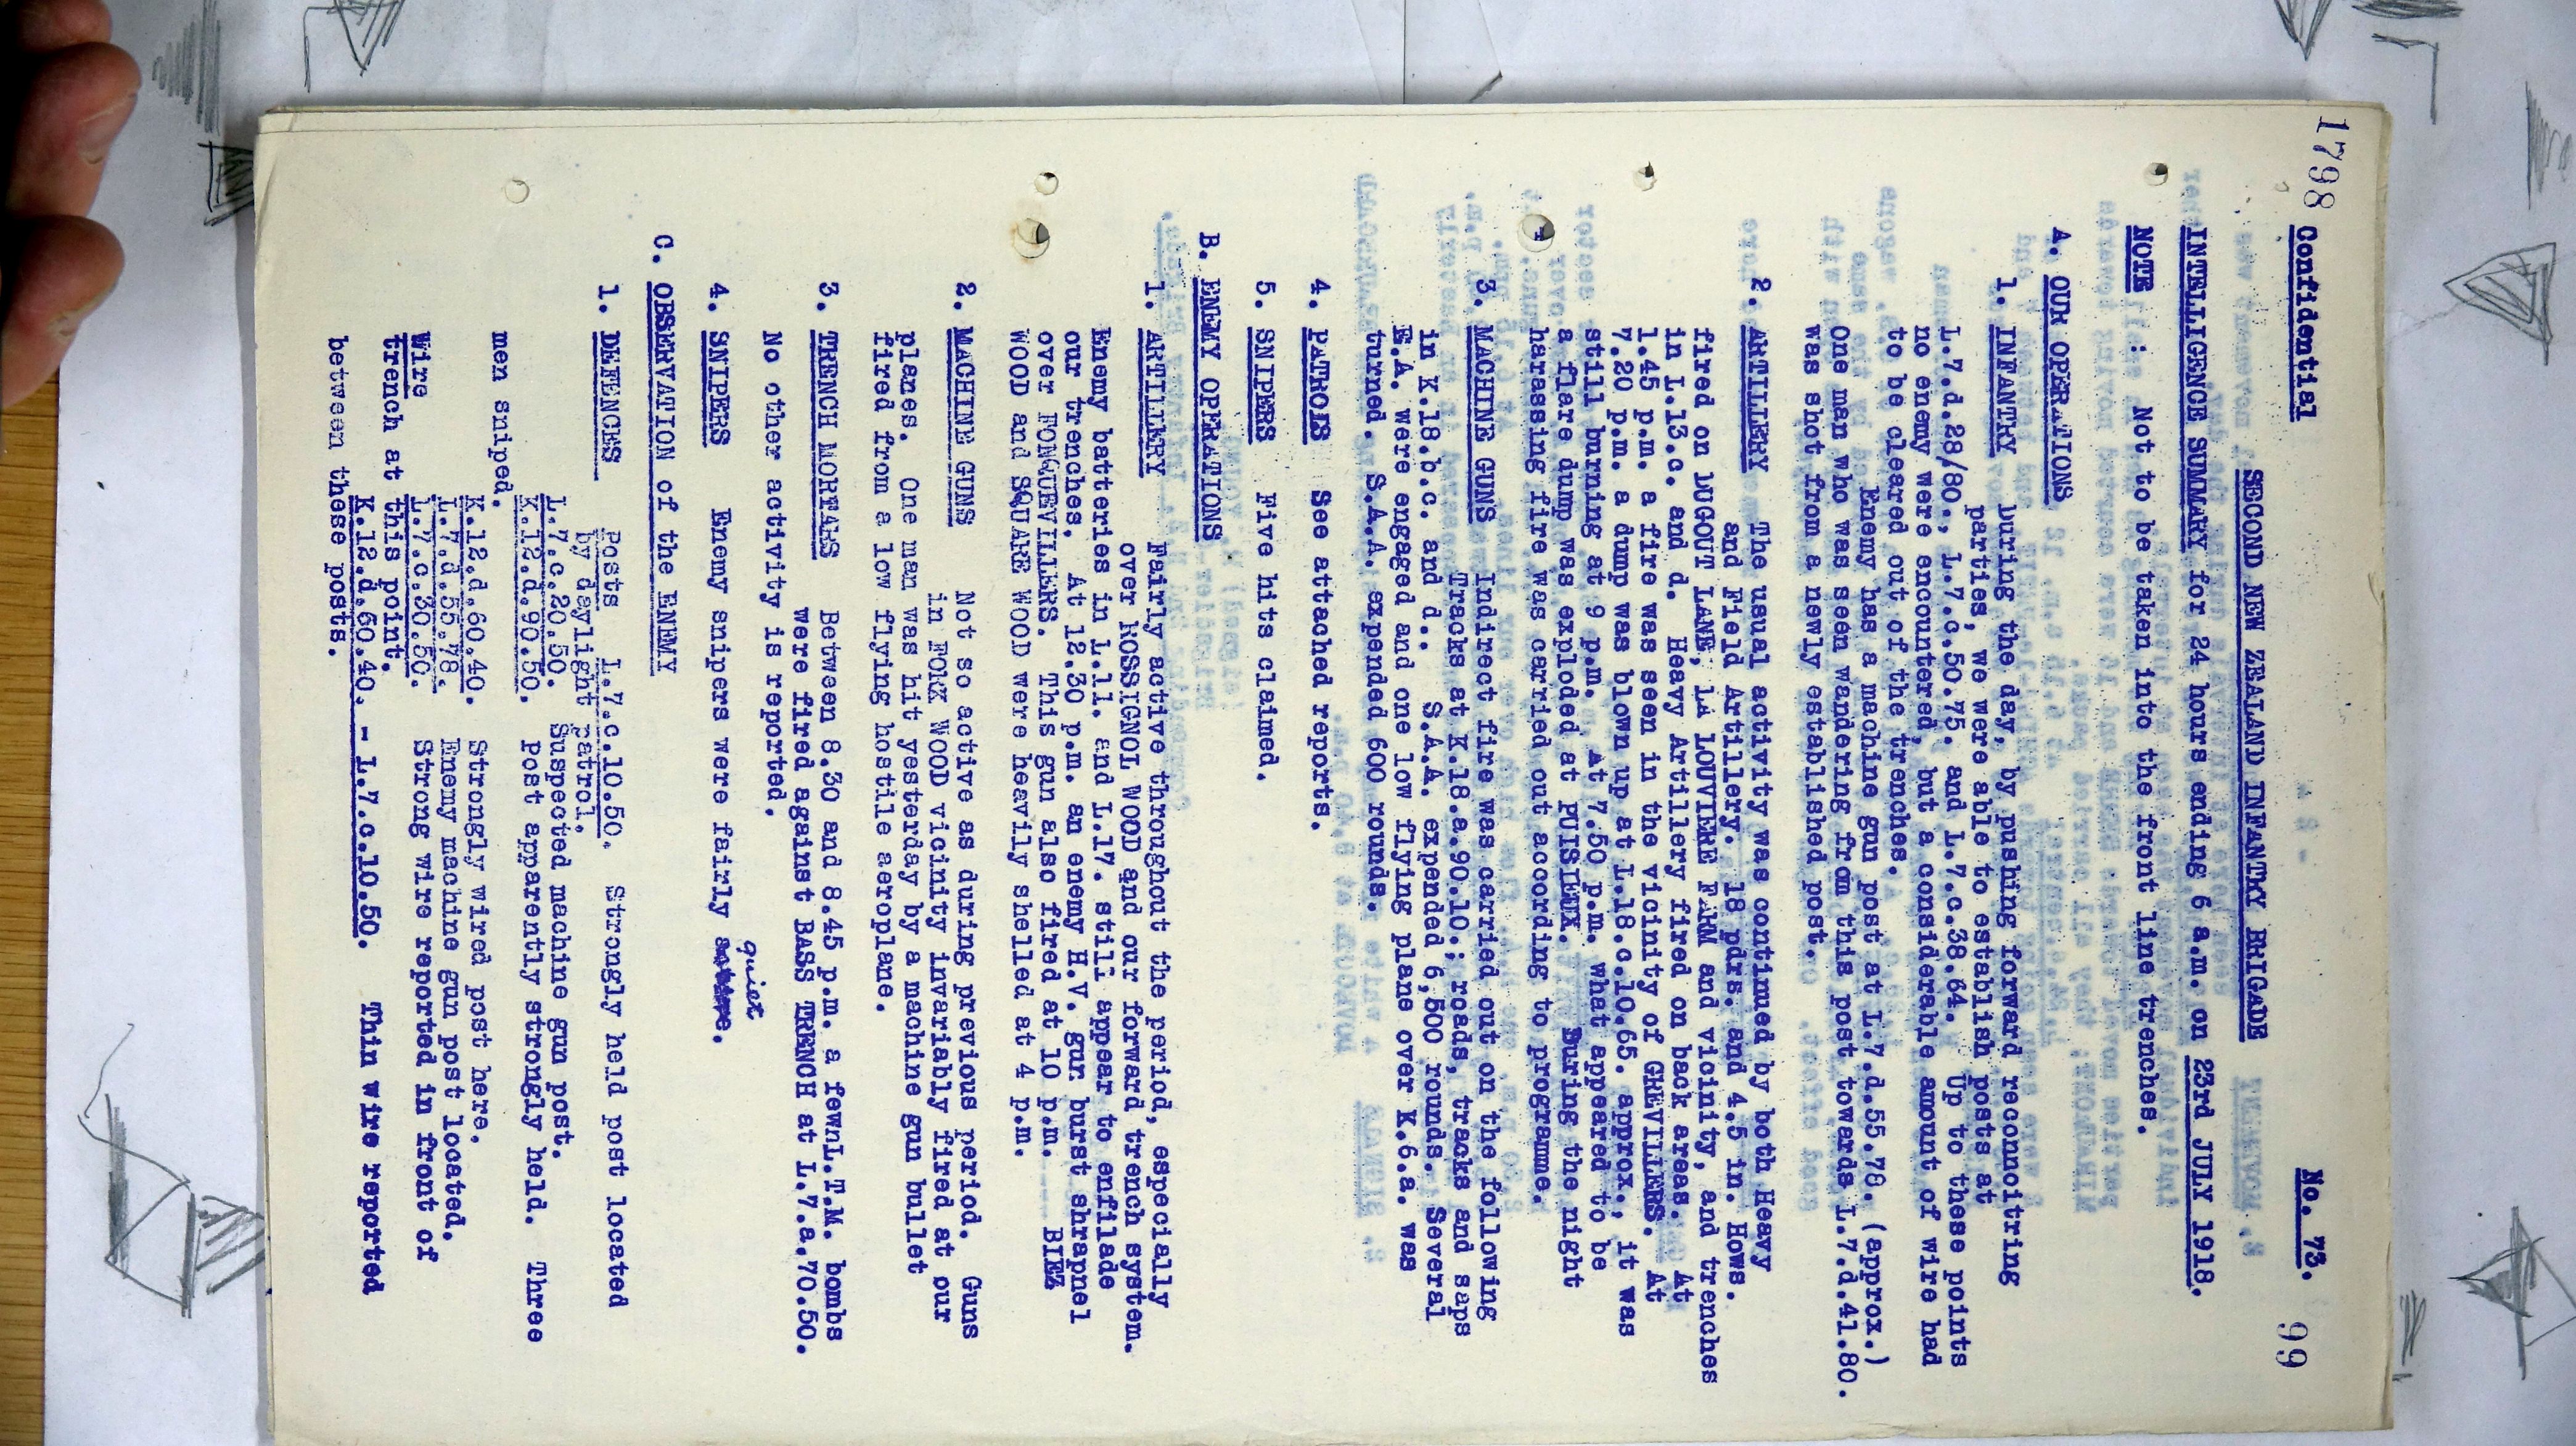 1798
Confidential No. 73. 99
SECOND NEW ZEALAND INFANTRY BRIGADE
INTELLIGENCE SUMMARY for 24 hours ending 6 a.m. on 23rd JULY 1918.
NOTE : Not to be taken into the front line trenches.
A. OUR OPERATIONS
1. INFANTRY During the day, by pushing forward reconnoitring
parties, we were able to establish posts at
L.7.d.28/80., L.7.c.50.75. and L.7.c.38.64. Up to these points
no enemy were encountered, but a considerable amount of wire had
to be cleared out of the trenches.
Enemy has a machine gun post at L.7.d.55.78. (approx.)
One man who was seen wandering from this post towards L.7.d.41.80.
was shot from a newly established post.
2. ARTILLERY The usual activity was continued by both Heavy
and Field Artillery. 18 pdrs. and 4.5 in. Hows.
fired on DUGOUT LANE, LA LOUVIERE FARM and vicinity, and trenches
in L.13.c. and d. Heavy Artillery fired on back areas. At
1.45 p.m. a fire was seen in the vicinity of GREVILLERS. At
7.20 p.m. a dump was blown up at L.18.c.10.65. approx., it was
still burning at 9 p.m. At 7.50 p.m. what appeared to be
a flare dump was exploded at PUISIEUX. During the night
harassing fire was carried out according to programme.
3. MACHINE GUNS Indirect fire was carried out on the following
Tracks at K.18.a.90.10.; roads, tracks and saps
in K.18.b.c. and d.. S.A.A. expended 6,500 rounds. Several
E.A. were engaged and one low flying plane over K.6.a. was
turned. S.A.A. expended 600 rounds.
4. PATROLS See attached reports.
5. SNIPERS Five hits claimed.
B. ENEMY OPERATIONS
1. ARTILLERY Fairly active throughout the period, especially
over ROSSIGNOL WOOD and our forward trench system.
Enemy batteries in L.11. and L.17. still appear to enfilade
our trenches. At 12.30 p.m. an enemy H.V. gun burst shrapnel
over FONQUEVILLERS. This gun also fired at 10 p.m. BIEZ
WOOD and SQUARE WOOD were heavily shelled at 4 p.m.
2. MACHINE GUNS Not so active as during previous period. Guns
in FORK WOOD vicinity invariably fired at our
planes. One man was hit yesterday by a machine gun bullet
fired from a low flying hostile aeroplane.
3. TRENCH MORTARS Between 8.30 and 8.45 p.m. a fewL.T.M. bombs
were fired against BASS TRENCH at L.7.a.70.50.
No other activity is reported.
quiet
4. SNIPERS Enemy snipers were fairly active.
C. OBSERVATION of the ENEMY
1. DEFENCES Posts L.7.c.10.50. Strongly held post located
by daylight patrol.
L.7.c.20.50. Suspected machine gun post.
K.12.d.90.50. Post apparently strongly held. Three
men sniped.
K.12.d.60.40. Strongly wired post here.
L.7.d.55.78. Enemy machine gun post located.
Wire L.7.c.30.50. Strong wire reported in front of
trench at this point.
K.12.d.60.40. - L.7.c.10.50. Thin wire reported
between these posts.